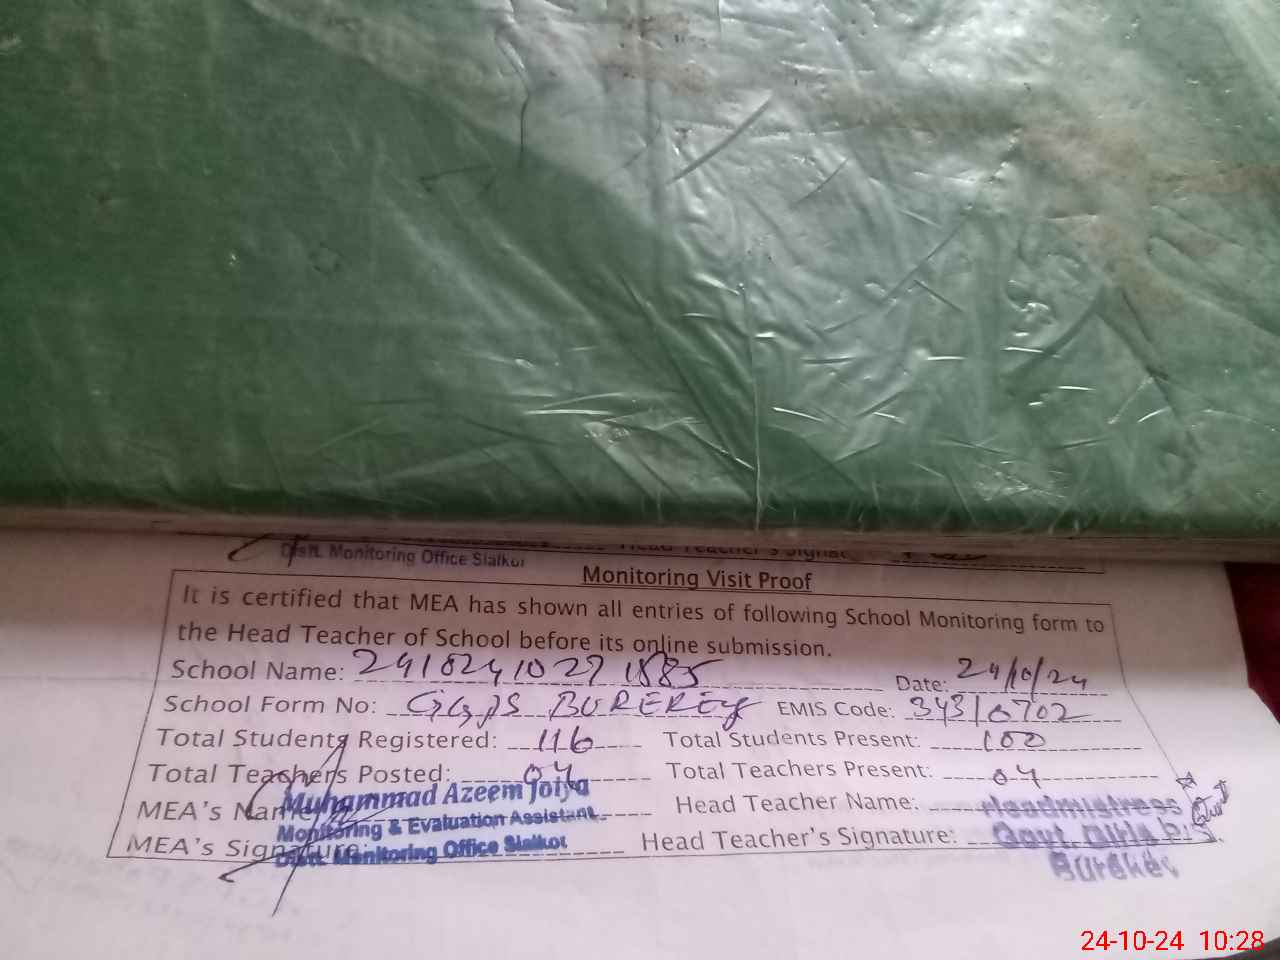 Distt. Monitoring Office Sialkot
Head Teacher's Signat
Monitoring Visit Proof
It is certified that MEA has shown all entries of following School Monitoring form to
the Head Teacher of School before its online submission.
School Name: 2418241027 1885 Date: 24/10/24
School Form No: GGPS BUREKEY EMIS Code: 34310702
Total Students Registered: 116 Total Students Present: 100
Total Teachers Posted: 04 Total Teachers Present: 04
MEA's Name Muhammad Azeem Joiya Head Teacher Name: Headmistress
Monitoring & Evaluation Assistant
MEA's Signature: Distt. Monitoring Office Sialkot Head Teacher's Signature: Govt. Girls P/S
24-10-24 10:28